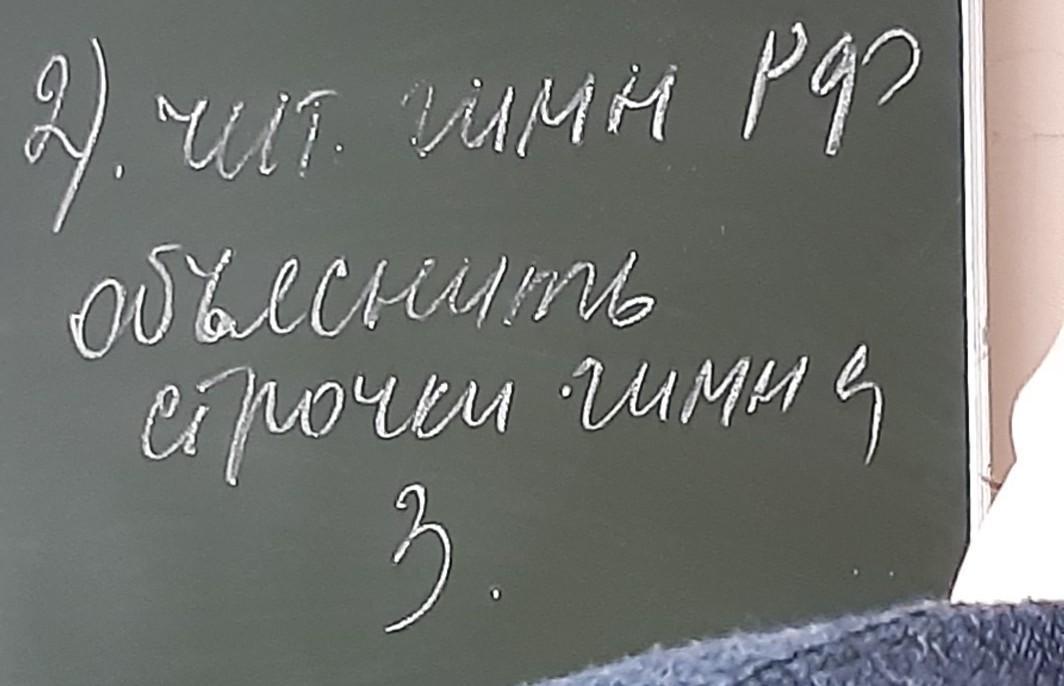 2). чит. гимн РФ
объяснить
строчки гимна
3.